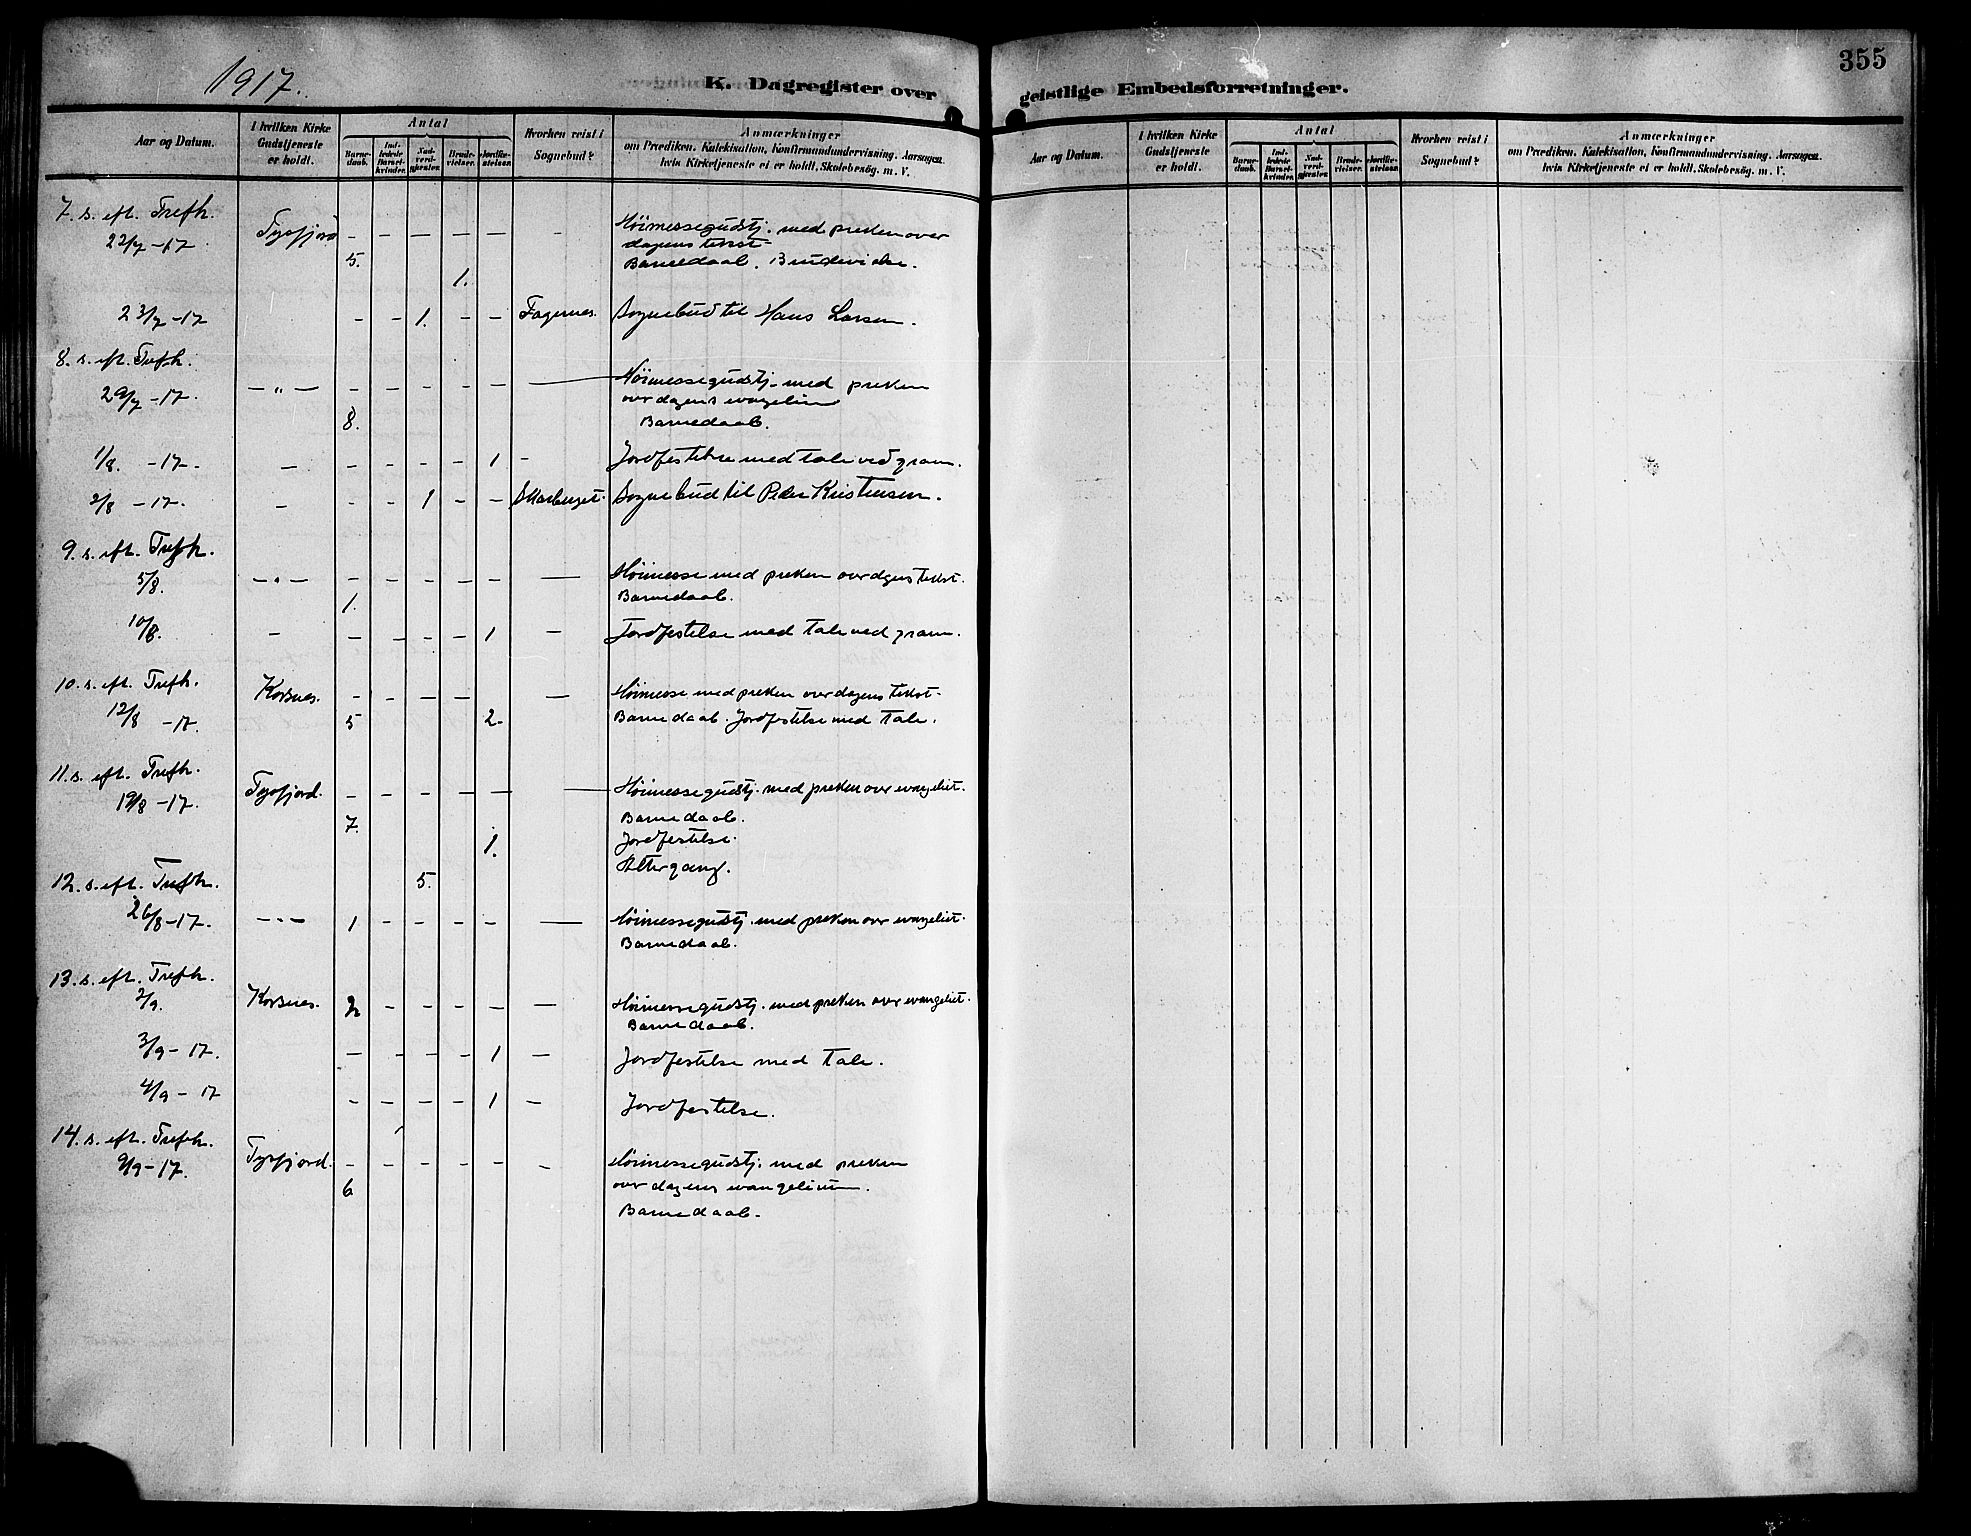 1917.
K. Dagregister over
geistlige Embedsforretninger.
355
Aar og Datum.
I hvilken Kirke Gudstjeneste er holdt.
Antal
Barnedaab.
Indledede Barselkvinder.
Nadverdgjester.
Brudevielser.
Jordfæstelser.
Hvorhen reist i Sognebud?
Anmærkninger
om Prædiken, Katekisation, Konfirmandundervisning, Aarsagen,
hvis Kirketjeneste ei er holdt, Skolebesøg. m. V.
Aar og Datum.
I hvilken Kirke Gudstjeneste er holdt.
Antal
Barnedaab.
Indledede Barselkvinder.
Nadverdgjester.
Brudevielser.
Jordfæstelser.
Hvorhen reist i Sognebud?
Anmærkninger
om Prædiken, Katekisation, Konfirmandundervisning, Aarsagen,
hvis Kirketjeneste ei er holdt, Skolebesøg. m. V.
7. s. eft. Trefh.
22/7 - 17 Tysfjord - - - - - - Höimessegudstj. med preken over
dagens tekst
5. Barnedaab. Brudevielse.
1.
23/7 - 17 - - 1. - - Fagernes. Sognebud til Hans Larsen.
8. s. eft. Trefh.
29/7 - 17. - " - - - - - - — Höimessegudstj. med preken
over dagens evangelium
8. Barnedaab.
1/8. - 17. - - - - - 1 - Jordfestelse med tale ved graven.
2/8 - 17. - - - 1 - - Skarberget. Sognebud til Peder Kristensen.
9. s. eft. Trefh.
5/8. - " - - - - - - — Höimesse med preken over dagens tekst.
1. Barnedaab.
10/8. - - - - - 1 - Jordfestelse med tale ved graven.
10. s. eft. Trefh. Korsnes. - - - - — Höimesse med preken over dagens tekst.
12/8 - 17. 5 2. Barnedaab. Jordfestelse med tale.
11. s. eft. Trefh.
19/8 - 17. Tysfjord. - - - - - — Höimessegudstj. med preken over evangeliet.
7. Barnedaab.
1. Jordfestelse.
5. Altergang.
12. s. eft. Trefh.
26/8 - 17. - " - 1 - - - - — Höimessegudstj. med preken over evangeliet.
Barnedaab.
13. s. eft. Trefh.
2/9. Korsnes. 2 - - - - — Höimessegudstj. med preken over evangeliet.
Barnedaab.
3/9 - 17. - - - - 1 - Jordfestelse med tale.
4/9 - 17 - - - - 1 - Jordfestelse.
14. s. eft. Trefh.
9/9 - 17. Tysfjord. - - - - - - Höimessegudstj. med preken
6 over dagens evangelium.
Barnedaab.